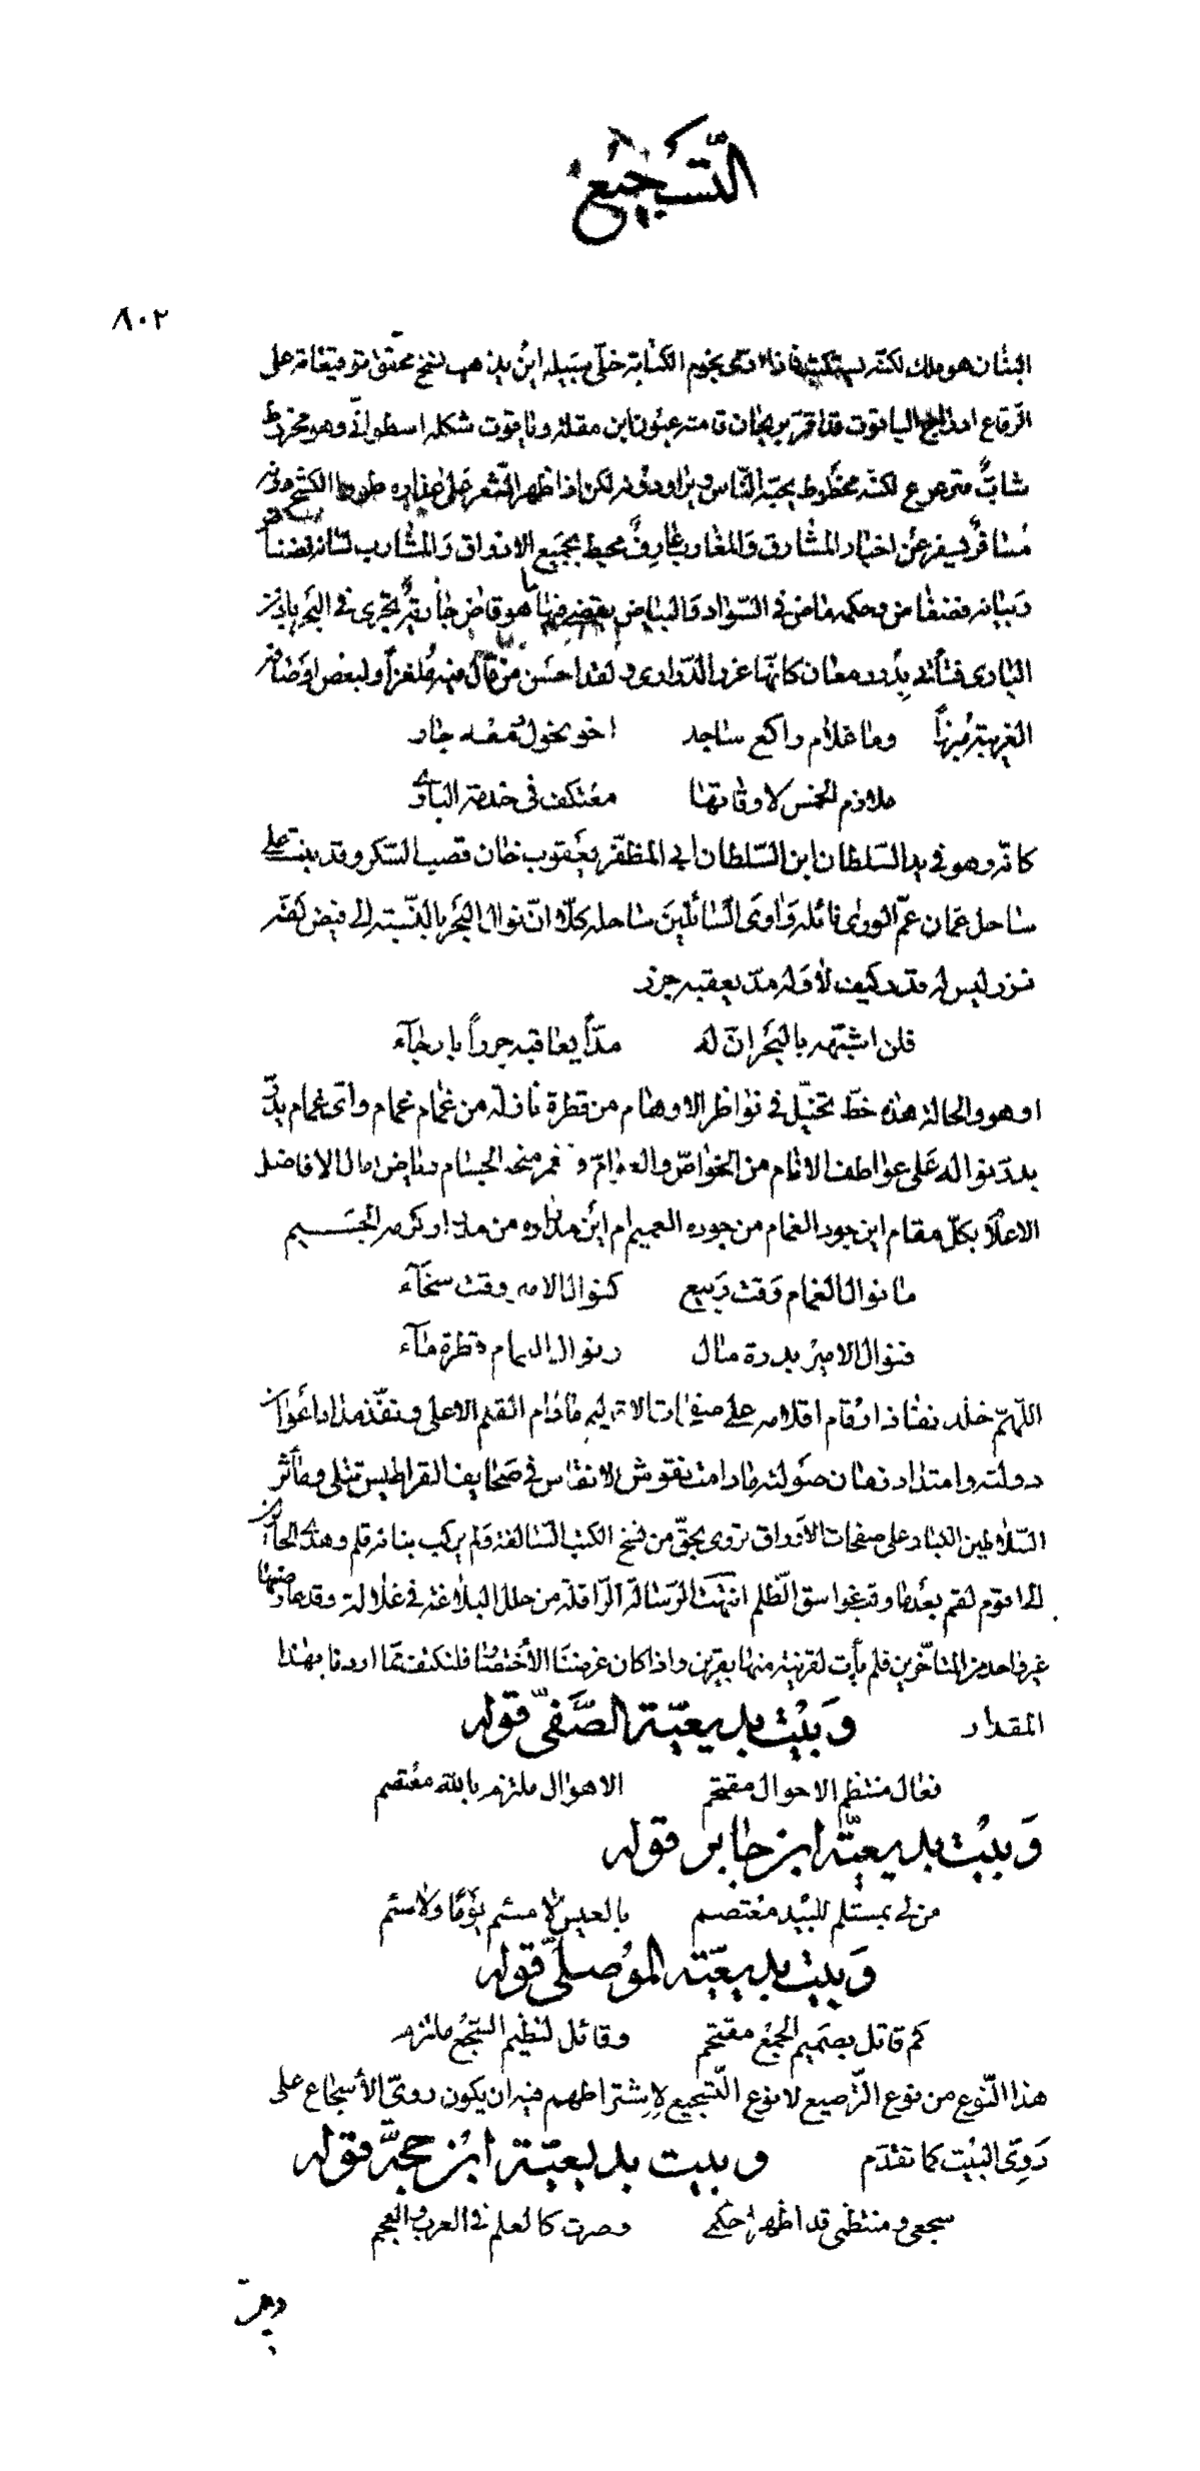 التسجيع
٨٠٢
البنان هو ملك لكنه يستكتب فاذا ادعى بخويم الكتابة خلى سبيله ابن يذهب نسخ محقق توقيفاته على
الرقاع الياقوت قامته عيون ابن مقلة وياقوت شكله اسطواني وهو مخروط
شاب مترعرع لكنه محظوظ يحبه الناس ويراودونه لكن اذا ظهر الشعر على عذاره
مسافر يسفر عن اخبار المشارق والمغارب عارف محيط بجميع الاذواق والمشارب لسانه
وبيانه وحكمه ماض في السواد والبياض هو قاض جارية تجرى في البحر باذن
البارى فتأتى بدرر معان كانها غرر الدرارى ولقد احسن من قال فيه ملغزا ولبعض اوصافه
الغريبة مبرزا وما غلام راكع ساجد اخو نحول دمعه جار
ملازم الخمس لاوقاتها معتكف في خدمة البارى
كانه وهو في يد السلطان ابن السلطان ابى المظفر يعقوب خان قصب السكر وقد ينبت على
ساحل عمان عم الورى نائله واوى السائلين ساحله كلا ان نوال البحر بالنسبة الى فيض كفه
نزر ليس له قدر كيف لا وله مد يعقبه جزر
فلن اشبهه بالبحر ان له مدا يعاقبه جزرا بارجاء
او هو والحالة هذه خط تخيل في نواظر الاوهام من قطرة نازلة من غمام عمام وانى غمام
نواله على عواطف الانام من الخواص والعوام و منحه الجسام الافاضل
الاعلا بكل مقام اين جود الغمام من جوده العميم ام اين من كرمه الجسيم
ما نوال الغمام وقت ربيع كنوال الامير وقت سخاء
فنوال الامير بدرة مال ونوال الغمام قطرة ماء
اللهم خلد نفاذ ارقام اقلامه على صفحات الاقاليم ما دام القلم الاعلى ونفذ
دولته وامتداد زمان صولته ما دامت نقوش الانفاس في صحايف القراطيس تتلى ومآثر
السلاطين الكبار على صفحات الاوراق تروى بحق من نسخ الكتب السالفة ولم يركب بنانه قلم وهذه
اقوم لقم بعدها وقد غواسق الظلم انتهت الرسالة الرافلة من حلل البلاغة في غلالة وقد عارضها
غير واحد من المتاخرين فلم يأت لقرينة منها بقرين واذا كان غرضنا الاختصار فلنكتف مما اردنا بهذا
المقدار وبيت بديعية الصفى قوله
فعال منتظم الاحوال مقتحم الاهوال ملتزم بالله معتصم
وبيت بديعية ابن جابر قوله
من لى بمستلم للبيد معتصم بالعيس لا مسئم يوما ولا سئم
وبيت بديعية الموصلى قوله
كم قاتل بصميم الجمع مقتحم وقائل لنظيم السجع ملتزم
هذا النوع من نوع الترصيع لا نوع التسجيع لاشتراطهم فيه ان يكون روى الأسجاع على
روى البيت كما تقدم وبيت بديعية ابن حجة قوله
سجعى ومنتظمى قد اظهرا حكمى وصرت كالعلم في العرب والعجم